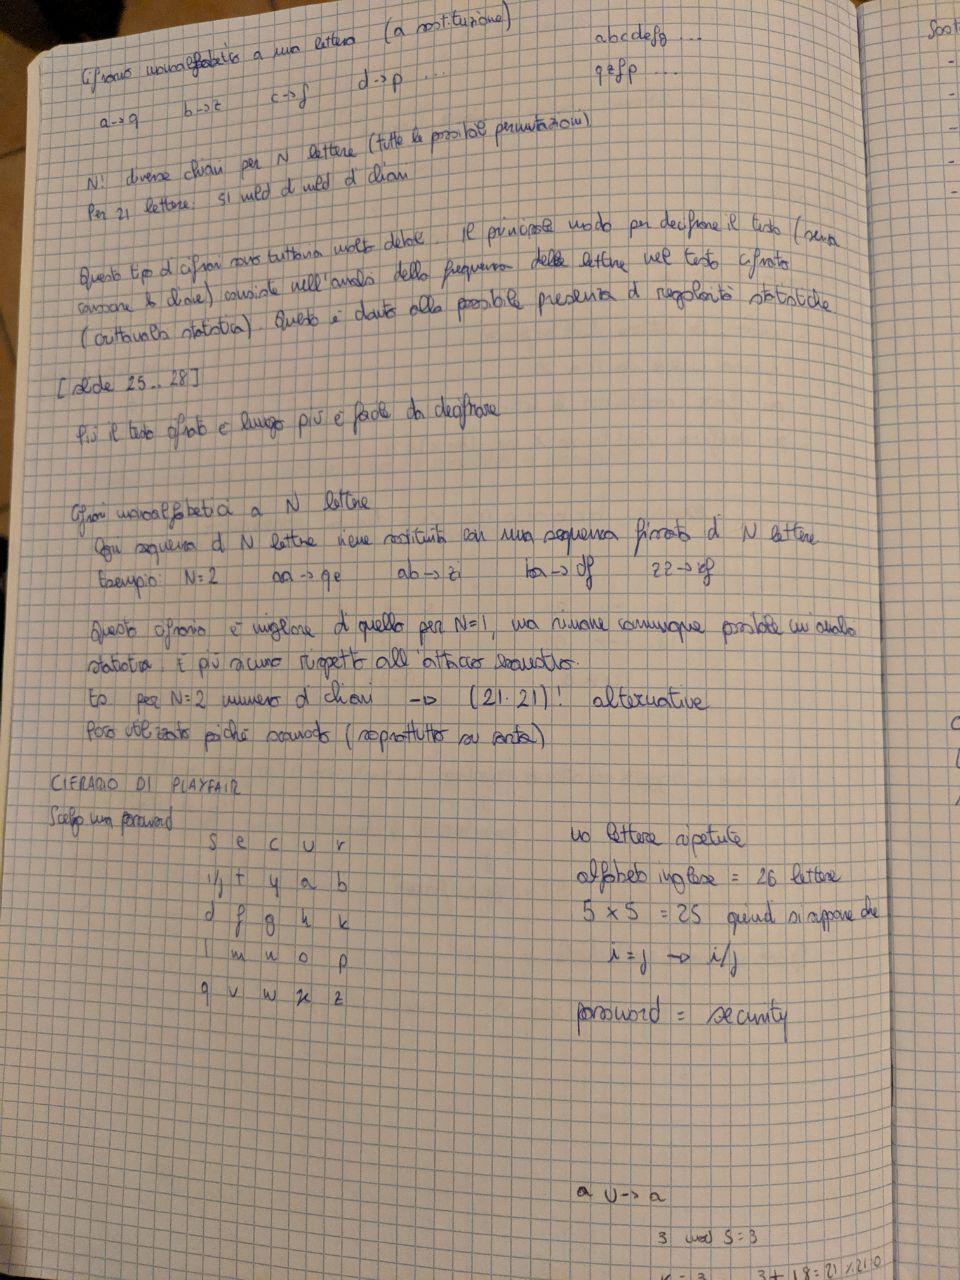 Cifrario monoalfabetico a una lettera (a sostituzione)
abcdefg ...
a→q b→z c→f d→p ...
qzfp ...
N! diverse chiavi per N lettere (tutte le possibili permutazioni)
Per 21 lettere: 51 mld di mld di chiavi
Questo tipo di cifrari sono tuttavia molto deboli. Il principale modo per decifrare il testo (senza
conoscere la chiave) consiste nell'analisi della frequenza delle lettere nel testo cifrato
(crittoanalisi statistica). Questo è dovuto alla possibile presenza di regolarità statistiche
[slide 25..28]
Più il testo cifrato è lungo più è facile da decifrare
Cifrari monoalfabetici a N lettere
Ogni sequenza di N lettere viene sostituita con una sequenza fissata di N lettere
Esempio: N=2 aa→qe ab→zi ba→df zz→xf
Questo cifrario è migliore di quello per N=1, ma rimane comunque possibile un'analisi
statistica. È più sicuro rispetto all'attacco esaustivo.
Es per N=2 numero di chiavi → (21·21)! alternative
Poco utilizzato poiché scomodo (soprattutto su carta)
CIFRARIO DI PLAYFAIR
Scelgo una password
s e c u r
i/j t y a b
d f g h k
l m n o p
q v w x z
no lettere ripetute
alfabeto inglese = 26 lettere
5 × 5 = 25 quindi si suppone che
i=j → i/j
password = security
a u→a
3 mod 5=3
3+18=21%21=0